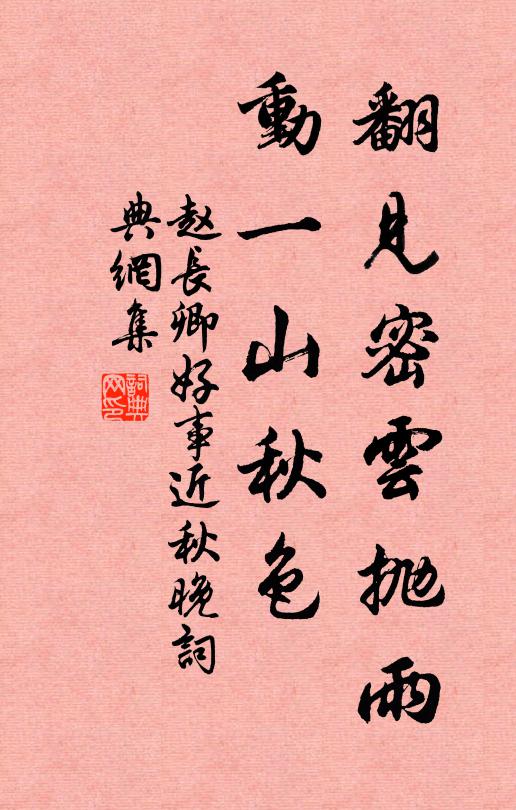 翻見密雲拋雨
動一山秋色
赵長卿好事近秋晚詞
典網集
詞典
网印